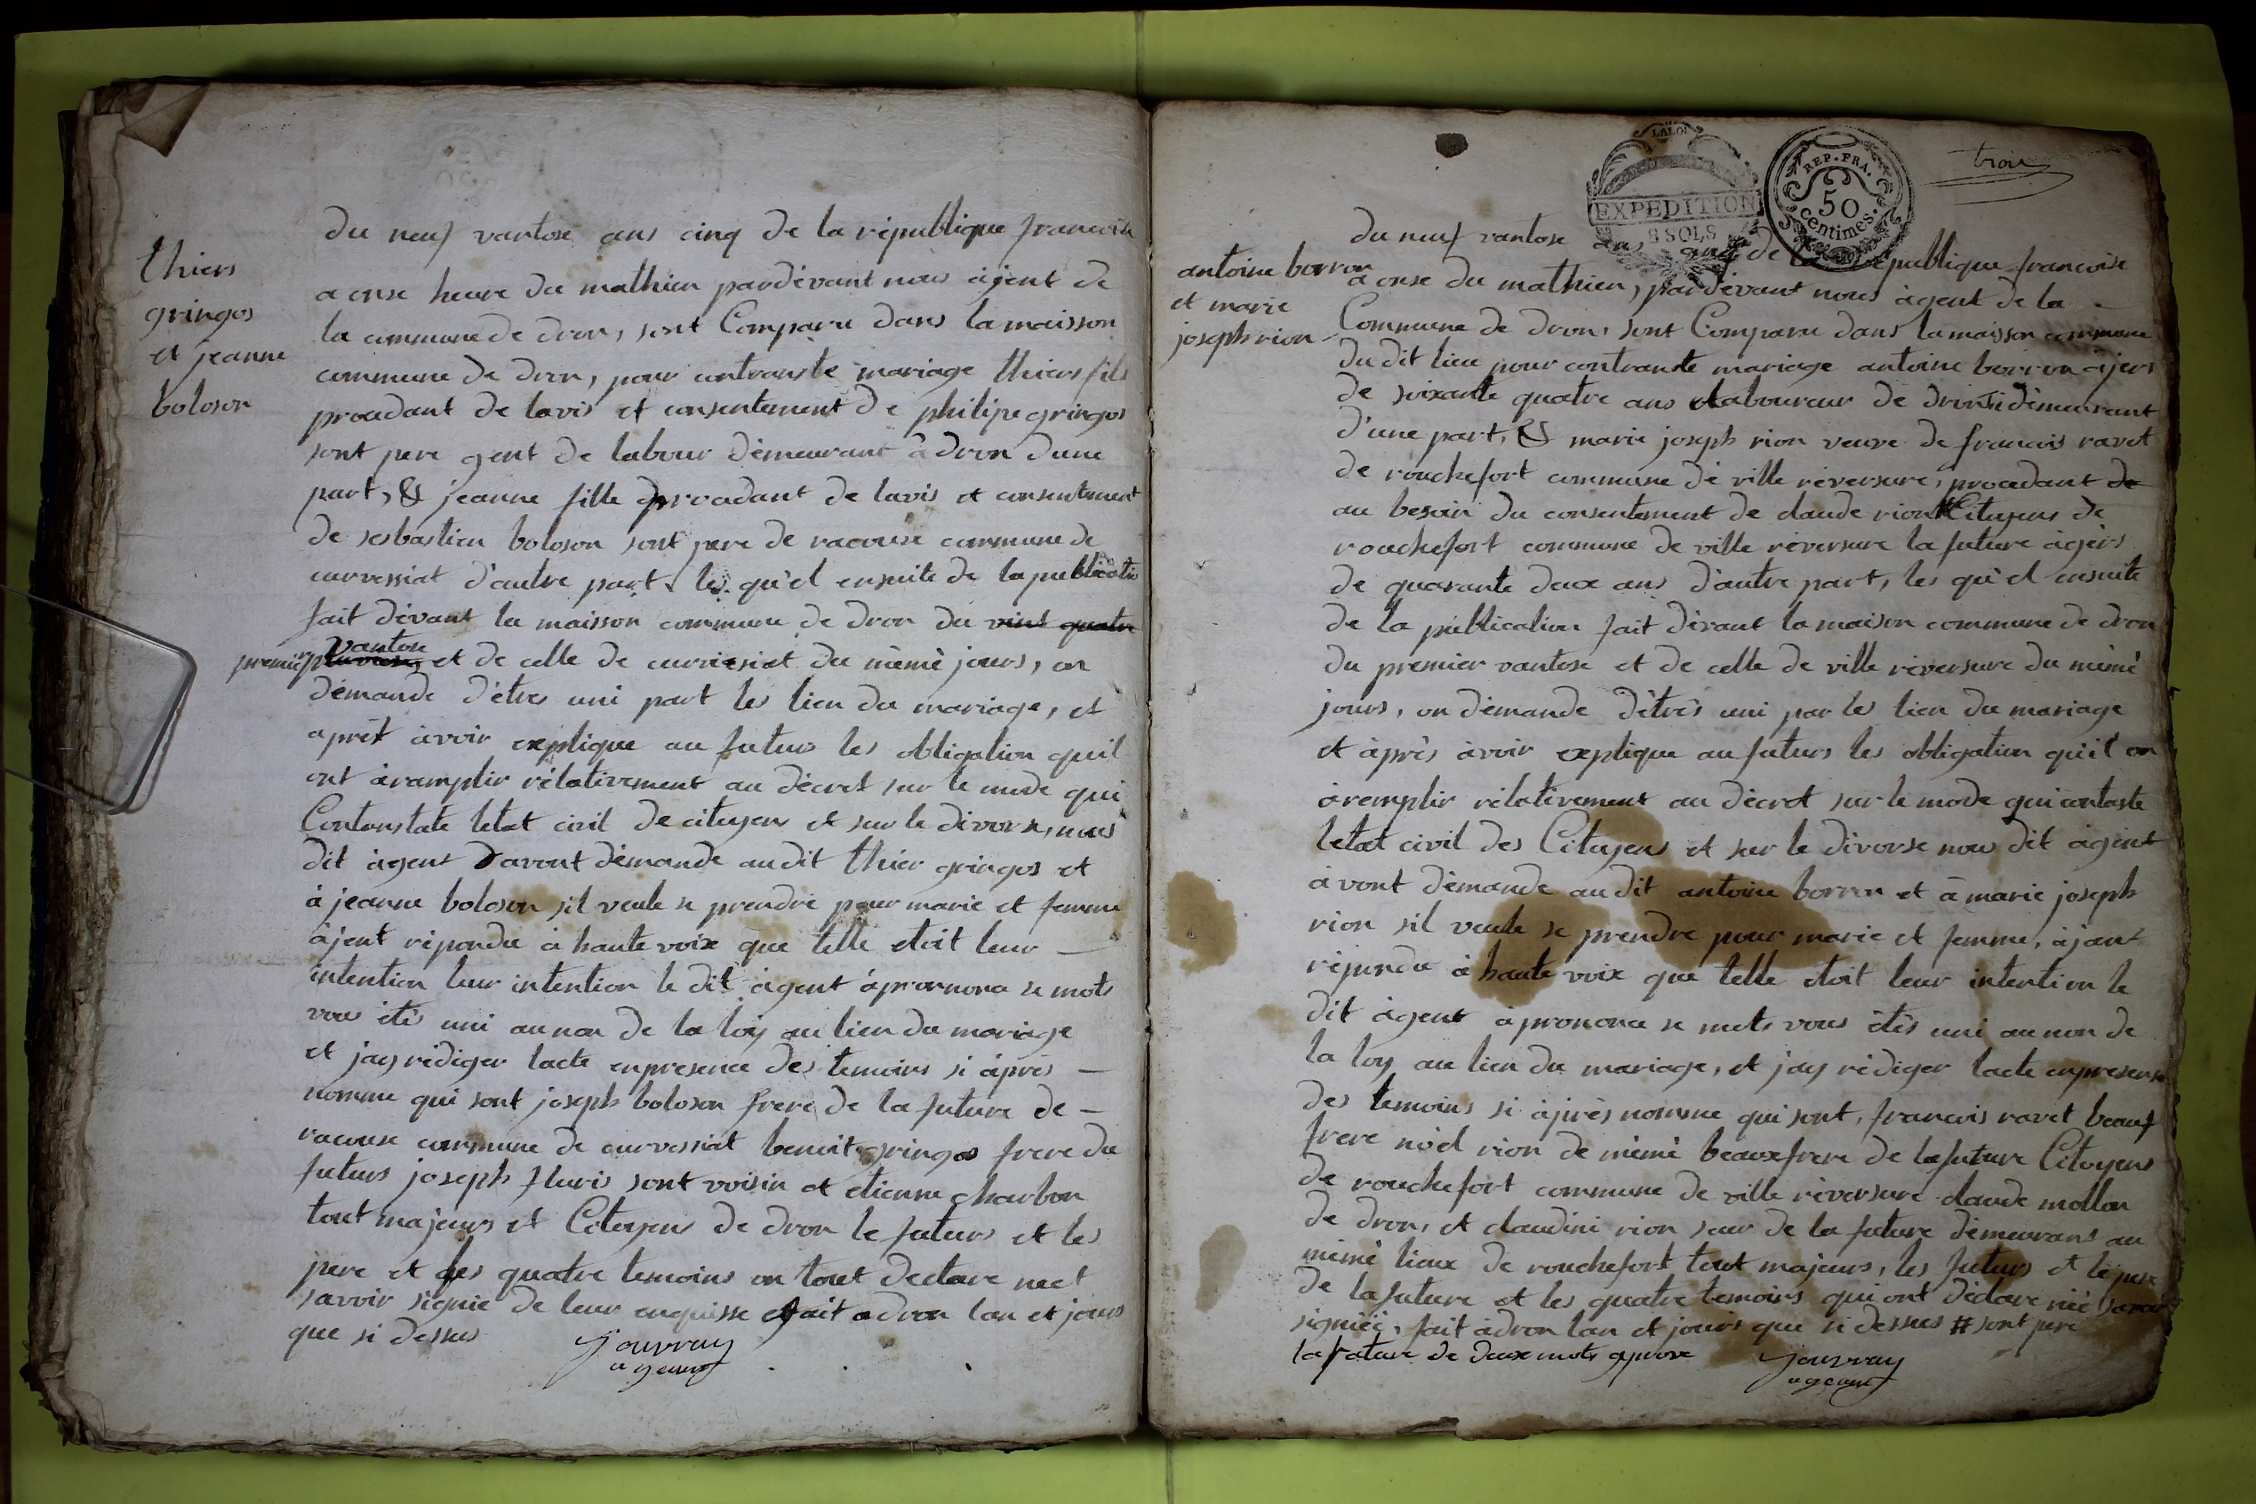 thiers
gringos
et jeanne
boloson
du neuf vantose ans cinq de la république francoise
a onse heure du mathien pardévant nous agent de
la commune de dron, sont Comparu dans la maisson
commune de dron, pour contranste mariage thiers fils
procedant de lavis et consentement de philipe gringos
sont pere gent de labour démeurant à dron dune
part, & jeanne fille procedant de lavis et consentement
de sesbastien boloson sont pere de racouse commune de
curvessiat d'autre part, les qu'el ensuite de la publicatio
fait dévant la maisson commune de dron du vint quatre
vantose
premier pluviose, et de celle de curvesiat du mémè jours, on
démande d'étres uni part les lien du mariage, et
aprèt avoir explique au futurs les obligation quil
ont àramplir rélativement au décret sur le mode qui
Contonstate letat civil de citoyen et sur le divorse, nous
dit àgent avont démande audit thier gringos et
à jeanne boloson sil veule se prendre pour marie et femme
àjent répondu à haute voix que telle etoit leur —
intention leur intention le dit agent àprononca se mots
vou étés uni au non de la loy au lien du mariage
et jay rédiger lacte enpresence des temoins si àprès —
nomme qui sont joseph boloson frere de la future de —
racouse commune de curvessiat benoit gringos frere du
futurs joseph fleuri sont voisin et etienne charbon
tout majeurs et Citoyens de dron le futurs et les
pere et les quatre temoins on tout declare neet
savoir signié de leur enquisse fait a dron lan et jours
que si dessus
jouvray
agent
trois
LA LOI
EXPEDITION
9 SOLS
REP. FRA.
50
centimes.
antoine borron
et marie
joseph rion
du neuf vantose ans cinq de la république francoise
a onse du mathien, pardévant nous àgent de la —
Commune de dron, sont Comparu dans la maisson commune
du dit lieu pour contranste mariage antoine borron àjers
de soixante quatre ans laboureur de dron démeurant
d'une part, & marie joseph rion veuve de francois ravet
de rouchefort commune dé ville réversure, procedant de
au besoin du consentement de claude rion # Citoyens de
rouchefort commune de ville réversure la future àgèrs
de quarante deux ans d'autre part, les qu'el ensuite
de la publication fait dévant la maison commune de dron
du premier vantose et de celle de ville réversure du mémè
jours, on démande d'étrés uni par les lien du mariage
et àprès àvoir explique au futurs les obligation qu'il on
àremplir rélativement au décret sur le mode qui contaste
letat civil des Citoyens et sur le divorse nous dit àgent
àvont démande audit antoine borron et à marie joseph
rion sil veule se prendre pour marie et femme, àjant
répondu à haute voix que telle etoit leur intention le
dit àgent àprononca se mots vous étés uni au non de
la loy au lien du mariage, et jay rédiger lacte enpresense
des temoins si àprès nomme qui sont, francois ravet beauf
frere noèl rion de mémè beauxfrere de lafuture Citoyens
de rouchefort commune de ville réversure claude mollon
de dron, et claudini rion seur de la future démeurans au
mémè lieux de rouchefort tout majeurs, les futurs et le pere
de lafuture et les quatre temoins qui ont déclare néé savoir
signiéé, fait àdron lan et jours que si dessus # sont pere
la rature de deux mots aprove
jouvray
agent